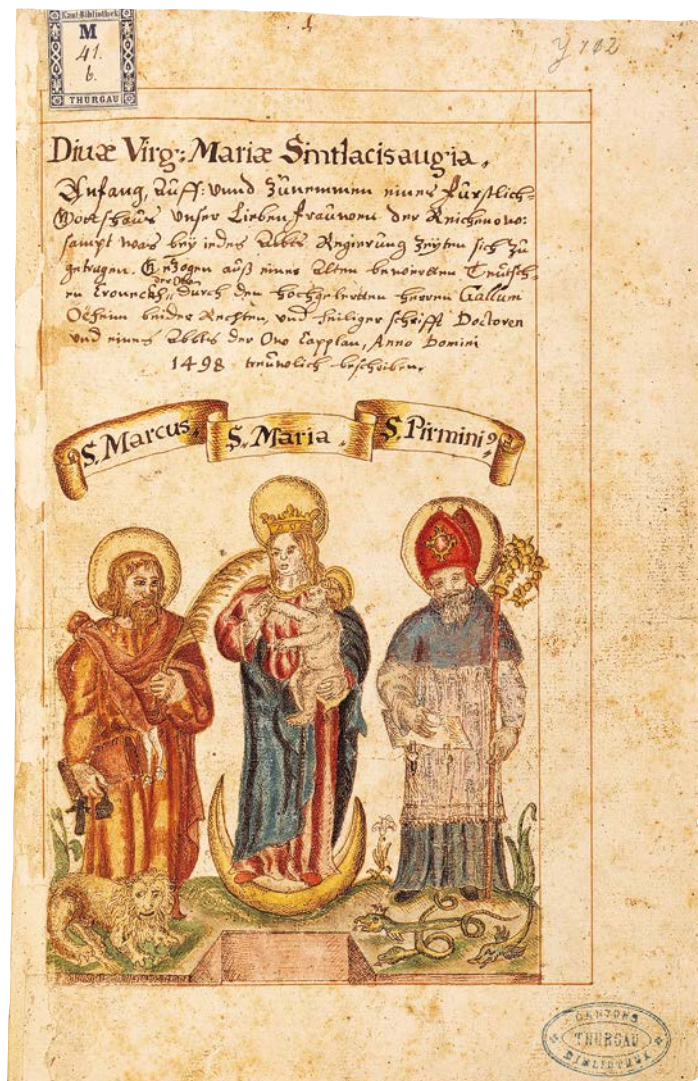 Kant. Bibliothek
M
41.
b.
THURGAU
y 102
Diuæ Virg: Mariæ Sintlacisaugia.
Anfang, Auff: vnnd Zünemmen eines Fürstlich-
Gottshaus vnser Lieben frauwen der Reichenow:
sampt was bey iedes Abbts Regierung Zeyten sich zü
getragen. Gezogen auß einer Alten bewerten Teutsch-
en Croneckh, durch den hochgelertten herren Gallum
der Otto
Öcheim beider Rechten, vnd heiliger schrifft Doctoren
vnd eines Abbts der Ow Capplan, Anno Domini
1498 treüwlich beschriben.
S. Marcus. S. Maria. S. Pirmini9
CANTONS
THURGAU
BIBLIOTHEK